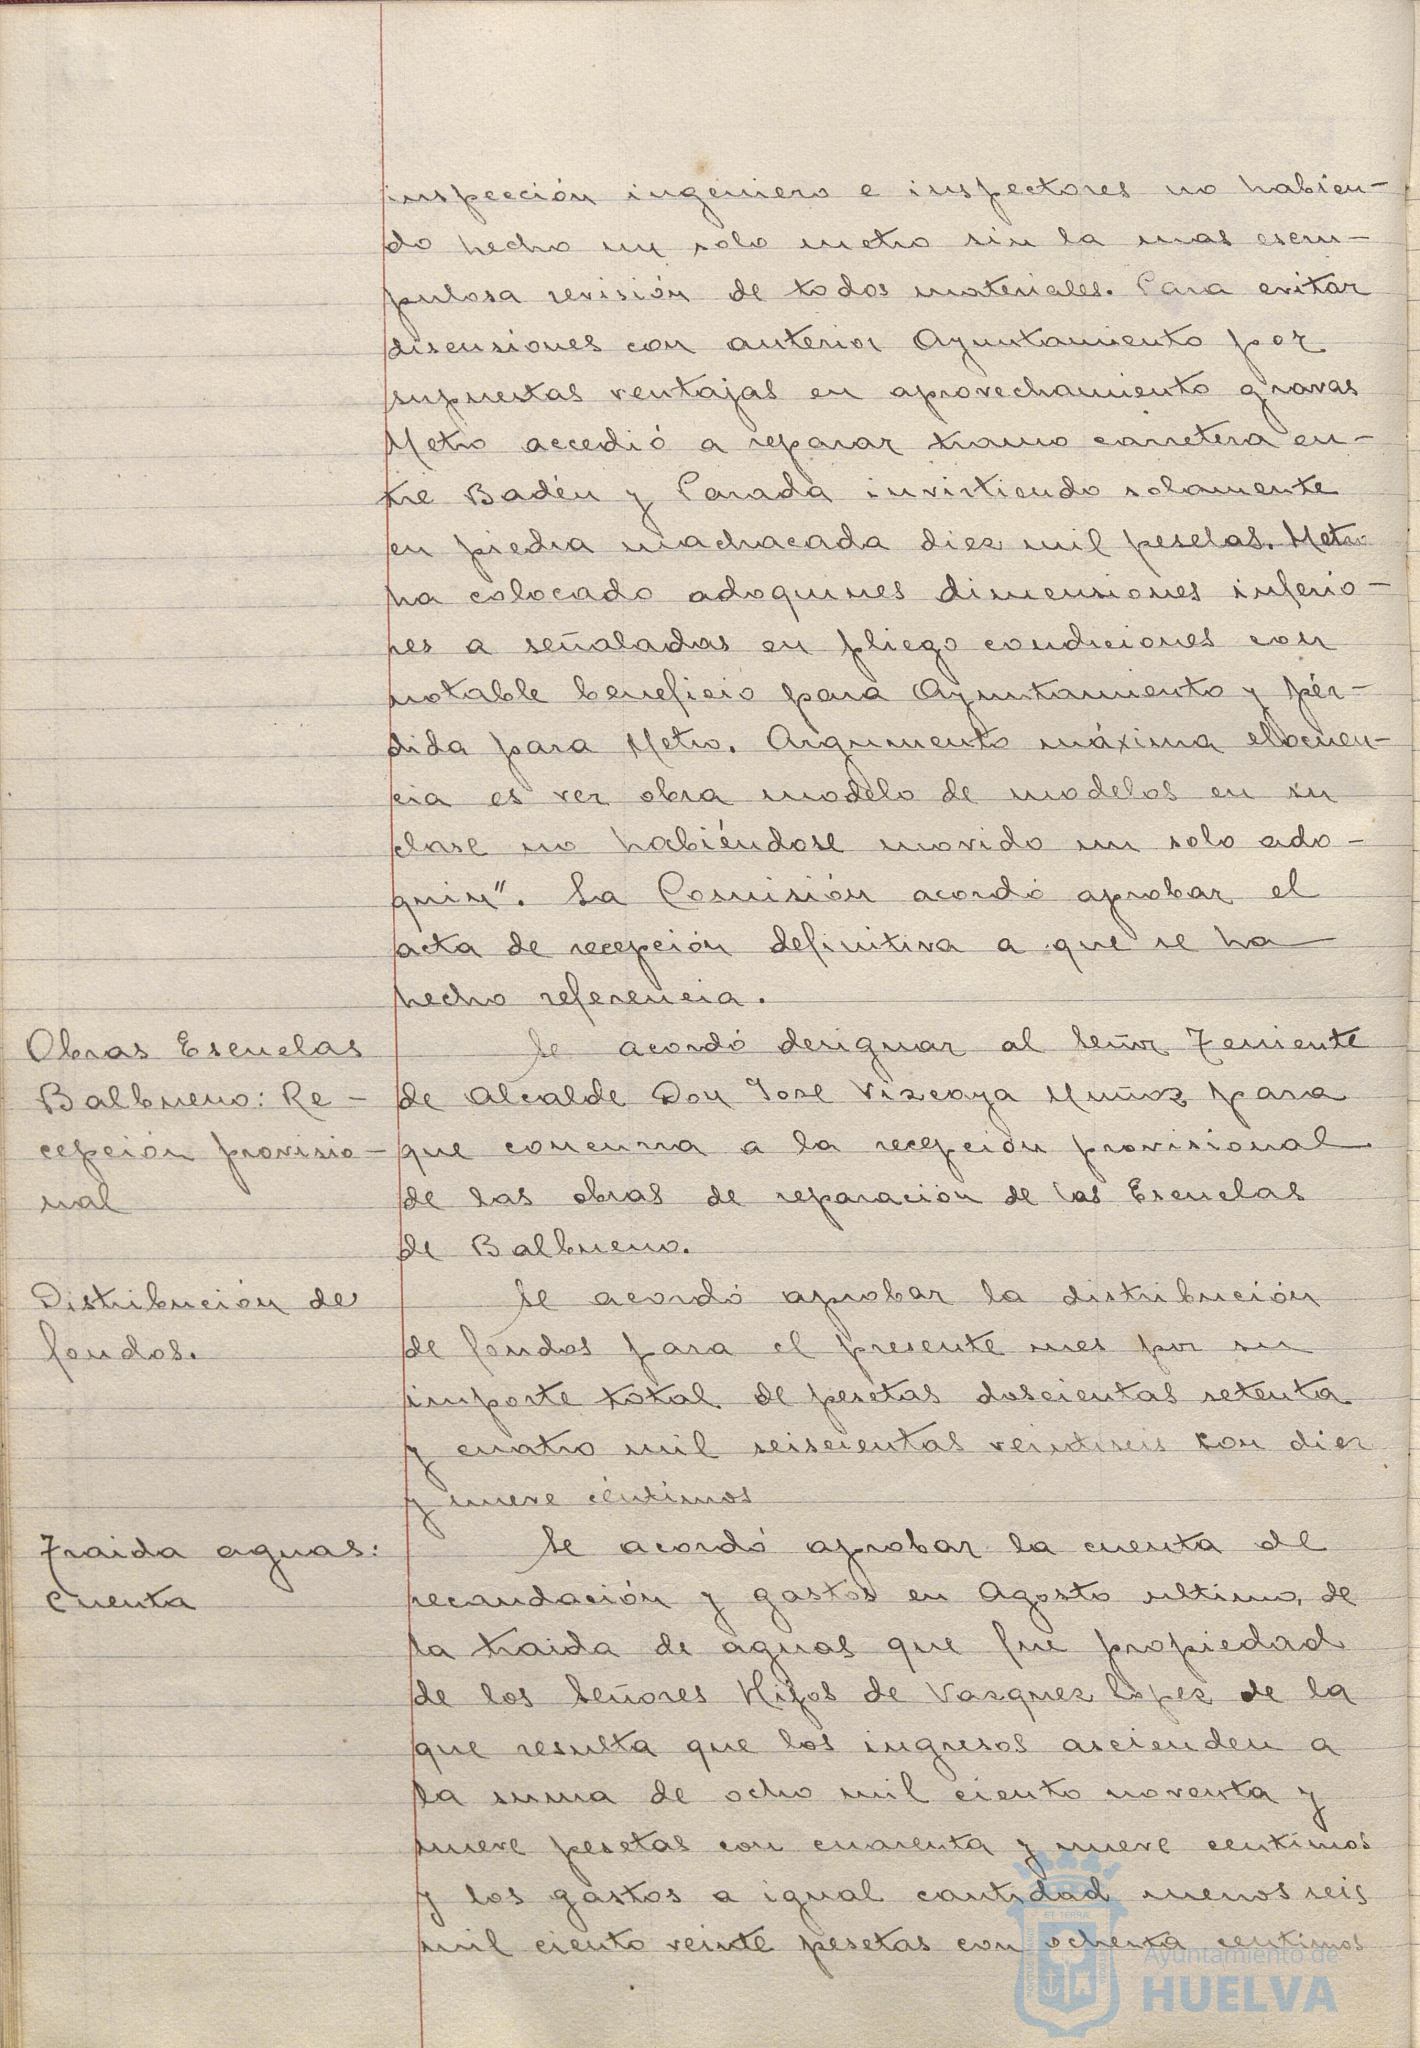 inspección ingeniero e inspectores no habien-
do hecho un solo metro sin la mas escru-
pulosa revisión de todos materiales. Para evitar
discusiones con anterior Ayuntamiento por
supuestas ventajas en aprovechamiento gravas
Metro accedió a reparar tramo carretera en-
tre Badén y Parada invirtiendo solamente
en piedra machacada diez mil pesetas. Metro
ha colocado adoquines dimensiones inferio-
res a señaladas en pliego condiciones con
notable beneficio para Ayuntamiento y pér-
dida para Metro. Argumento máxima elocuen-
cia es ver obra modelo de modelos en su
clase no habiéndose movido un solo ado-
quin". La Comisión acordó aprobar el
acta de recepción definitiva a que se ha
hecho referencia.
Obras Escuelas
Balbueno: Re-
cepción provisio-
nal
Se acordó designar al Señor Teniente
de Alcalde Don José Vizcaya Muñoz para
que concurra a la recepción provisional
de las obras de reparación de las Escuelas
de Balbueno.
Distribución de
fondos.
Se acordó aprobar la distribución
de fondos para el presente mes por su
importe total de pesetas doscientas setenta
y cuatro mil seiscientas veintiseis con diez
y nueve céntimos
Traida aguas:
cuenta
Se acordó aprobar la cuenta de
recaudación y gastos en Agosto ultimo, de
la traida de aguas que fue propiedad
de los Señores Hijos de Vazquez Lopez de la
que resulta que los ingresos ascienden a
la suma de ocho mil ciento noventa y
nueve pesetas con cuarenta y nueve centimos
y los gastos a igual cantidad menos seis
mil ciento veinte pesetas con ochenta centimos
Ayuntamiento de
HUELVA